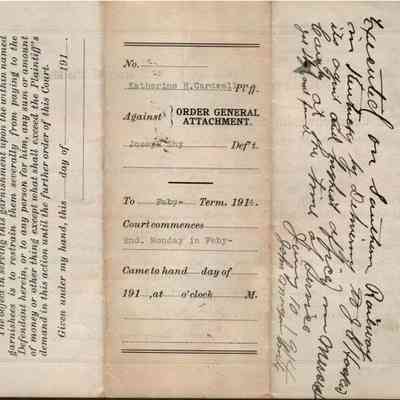 The object in serving this garnishment upon the within named
garnishees is to restrain them severally from paying to the
Defendant herein, or to any person for him, any sum or amount
of money or other thing except what shall exceed the Plaintiff's
demand in this action until the further order of this Court.
Given under my hand, this day of 191 .
No.
Katherine M. Cardwell Pl'ff.
Against } ORDER GENERAL
ATTACHMENT.
Joseph Def't.
To Feby- Term, 191
Court commences
2nd. Monday in Feby-
Came to hand day of
191 , at o'clock M.
Executed on Southern Railway
in by Delivering to J
its agent and officer in
County at the time of service